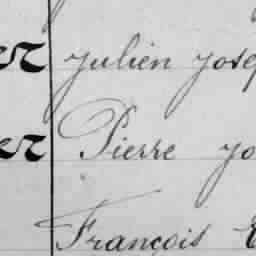 er Julien Jose
er Pierre Jo
François E